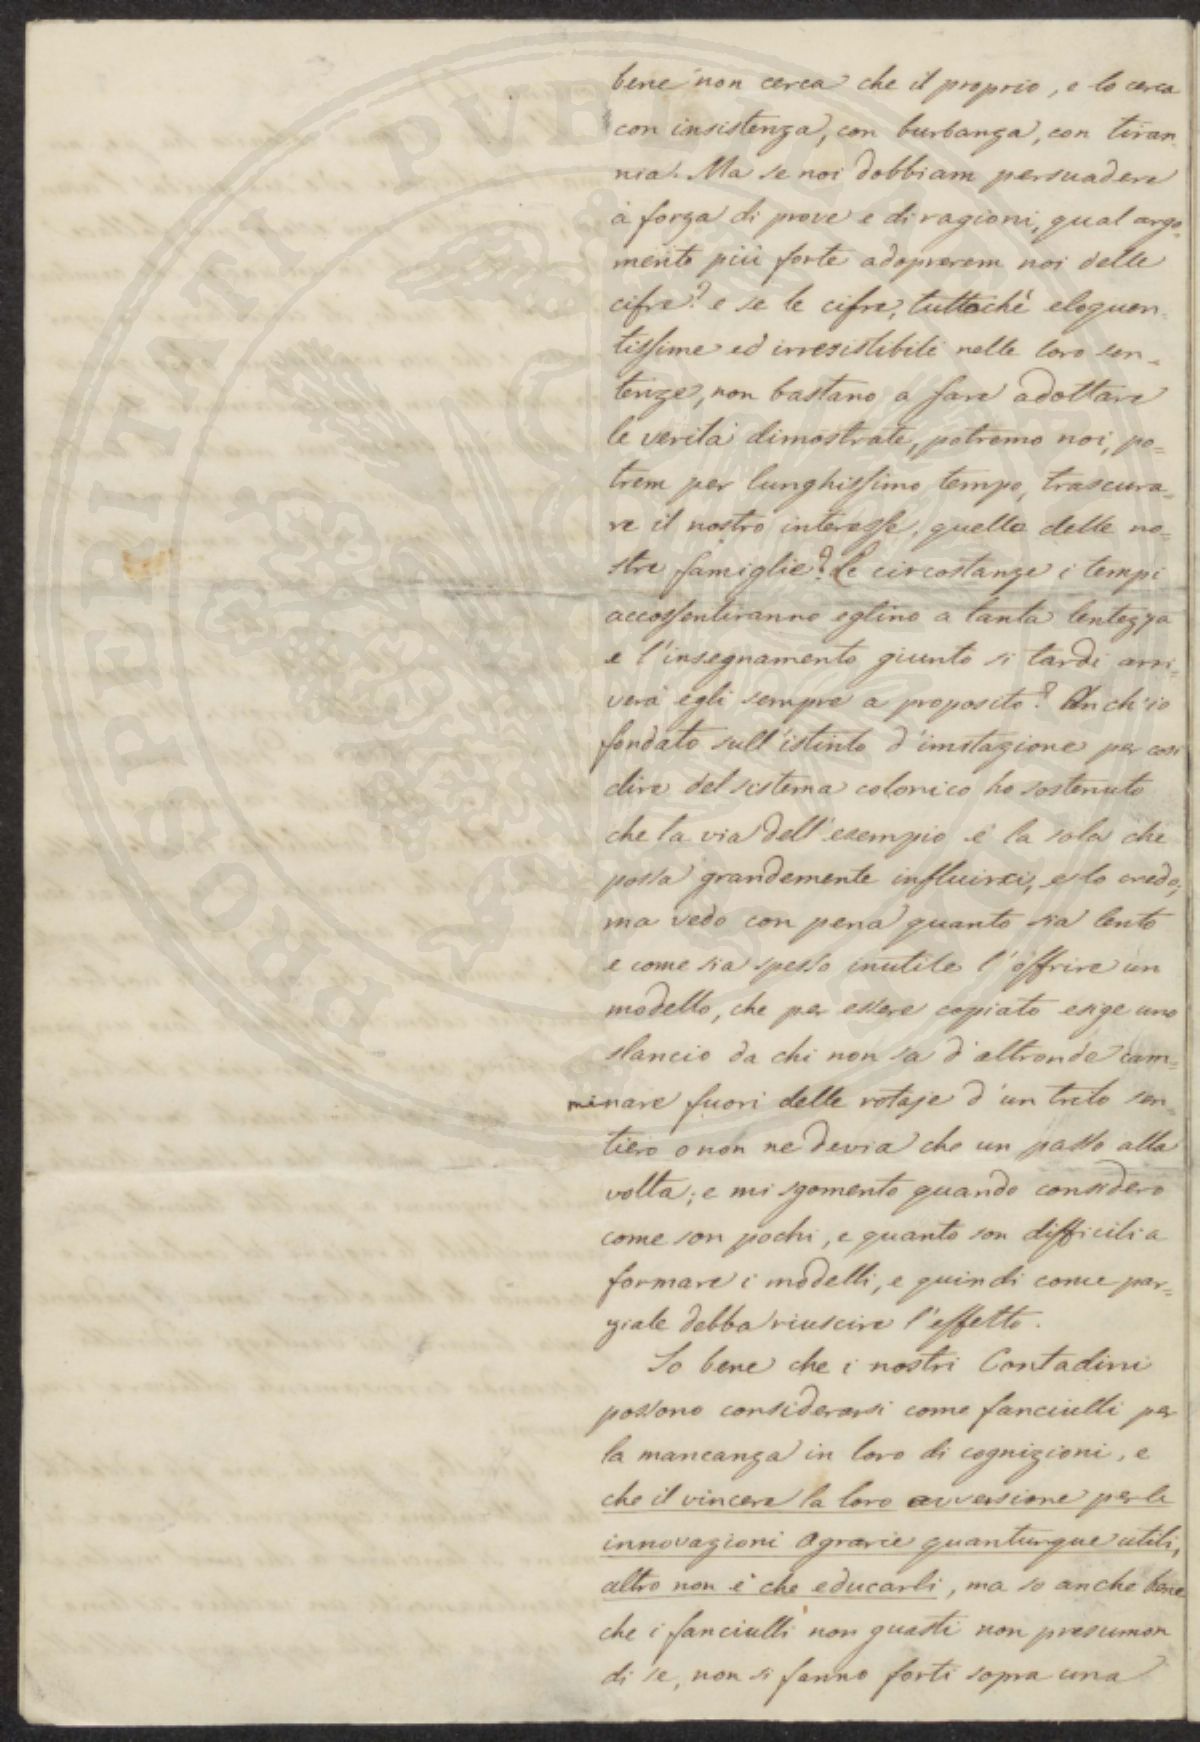 bene non cerca che il proprio, e lo cerca
con insistenza, con burbanza, con tiran-
nia. Ma se noi dobbiam persuadere
a forza di prove e di ragioni, qual argo-
mento più forte adoprerem noi delle
cifre? e se le cifre, tuttochè eloquen-
tissime ed irresistibili nelle loro sen-
tenze, non bastano a fare adottare
le verità dimostrate, potremo noi, po-
trem per lunghissimo tempo, trascura-
re il nostro interesse, quello delle no-
stre famiglie? Le circostanze i tempi
accossentiranno eglino a tanta lentezza
e l'insegnamento giunto si tardi arri-
verà egli sempre a proposito? Anch'io
fondato sull'istinto d'imitazione per cosi
dire del sistema colonico ho sostenuto
che la via dell'esempio è la sola che
possa grandemente influirci, e lo credo;
ma vedo con pena quanto sia lento
e come sia spesso inutile l'offrire un
modello, che per essere copiato esige uno
slancio da chi non sa d'altronde cam-
minare fuori delle rotaje d'un trito sen-
tiero o non ne devia che un passo alla
volta; e mi sgomento quando considero
come son pochi, e quanto son difficili a
formare i modelli, e quindi come par-
ziale debba riuscire l'effetto.
So bene che i nostri Contadini
possono considerarsi come fanciulli per
la mancanza in loro di cognizioni, e
che il vincere la loro avversione per le
innovazioni agrarie quantunque utili,
altro non è che educarli, ma so anche bene
che i fanciulli non guasti non presumon
di se, non si fanno forti sopra una
PROSPERITATI PVBLICAE